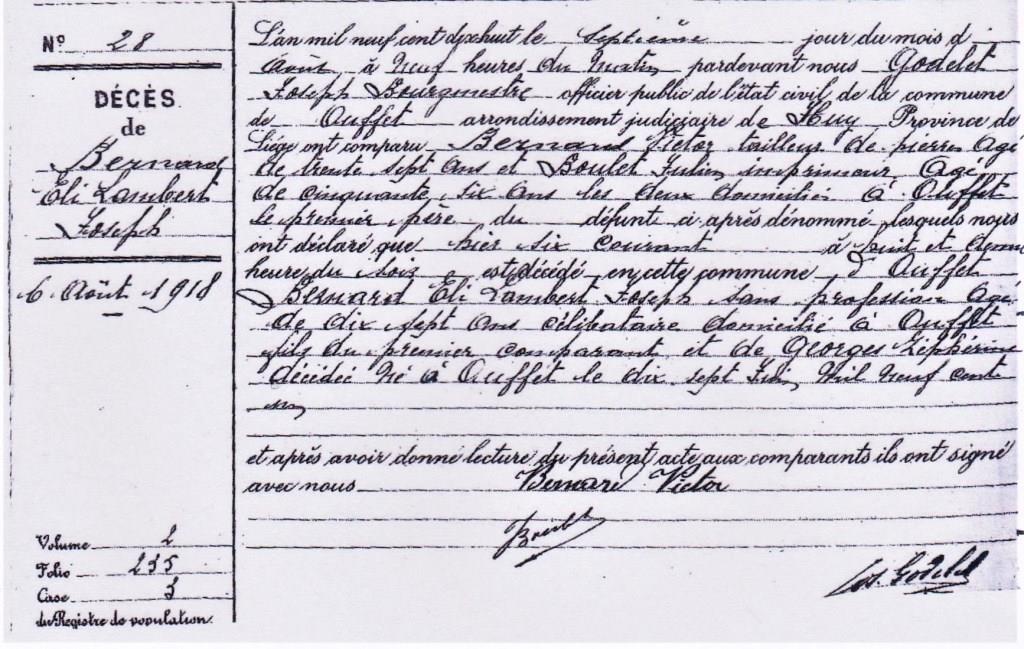 Nº 28
DÉCÈS
de
Bernard
Eli Lambert
Joseph
6 Août 1918
Volume 2
Folio 235
Case 3
du Registre de population.
L'an mil neuf cent dixhuit le septième jour du mois d
Août à Neuf heures du Matin pardevant nous Godelet
Joseph Bourgmestre officier public de l'état civil de la commune
de Ouffet arrondissement judiciaire de Huy Province de
Liège ont comparu Bernard Victor tailleur de pierres Agé
de trente sept ans et Boulet Julien imprimeur Agé
de cinquante six ans les deux domiciliés à Ouffet
le premier père du défunt ci après dénommé lesquels nous
ont déclaré que hier six courant à huit et demie
heure du soir est décédé en cette commune d'Ouffet
Bernard Eli Lambert Joseph sans profession Agé
de dix sept ans célibataire domicilié à Ouffet
fils du premier comparant et de Georges Zéphérine
décédée Né à Ouffet le dix sept Mil Neuf cent
un
et après avoir donné lecture du présent acte aux comparants ils ont signé
avec nous Bernard Victor
Boulet
Jos. Godelet